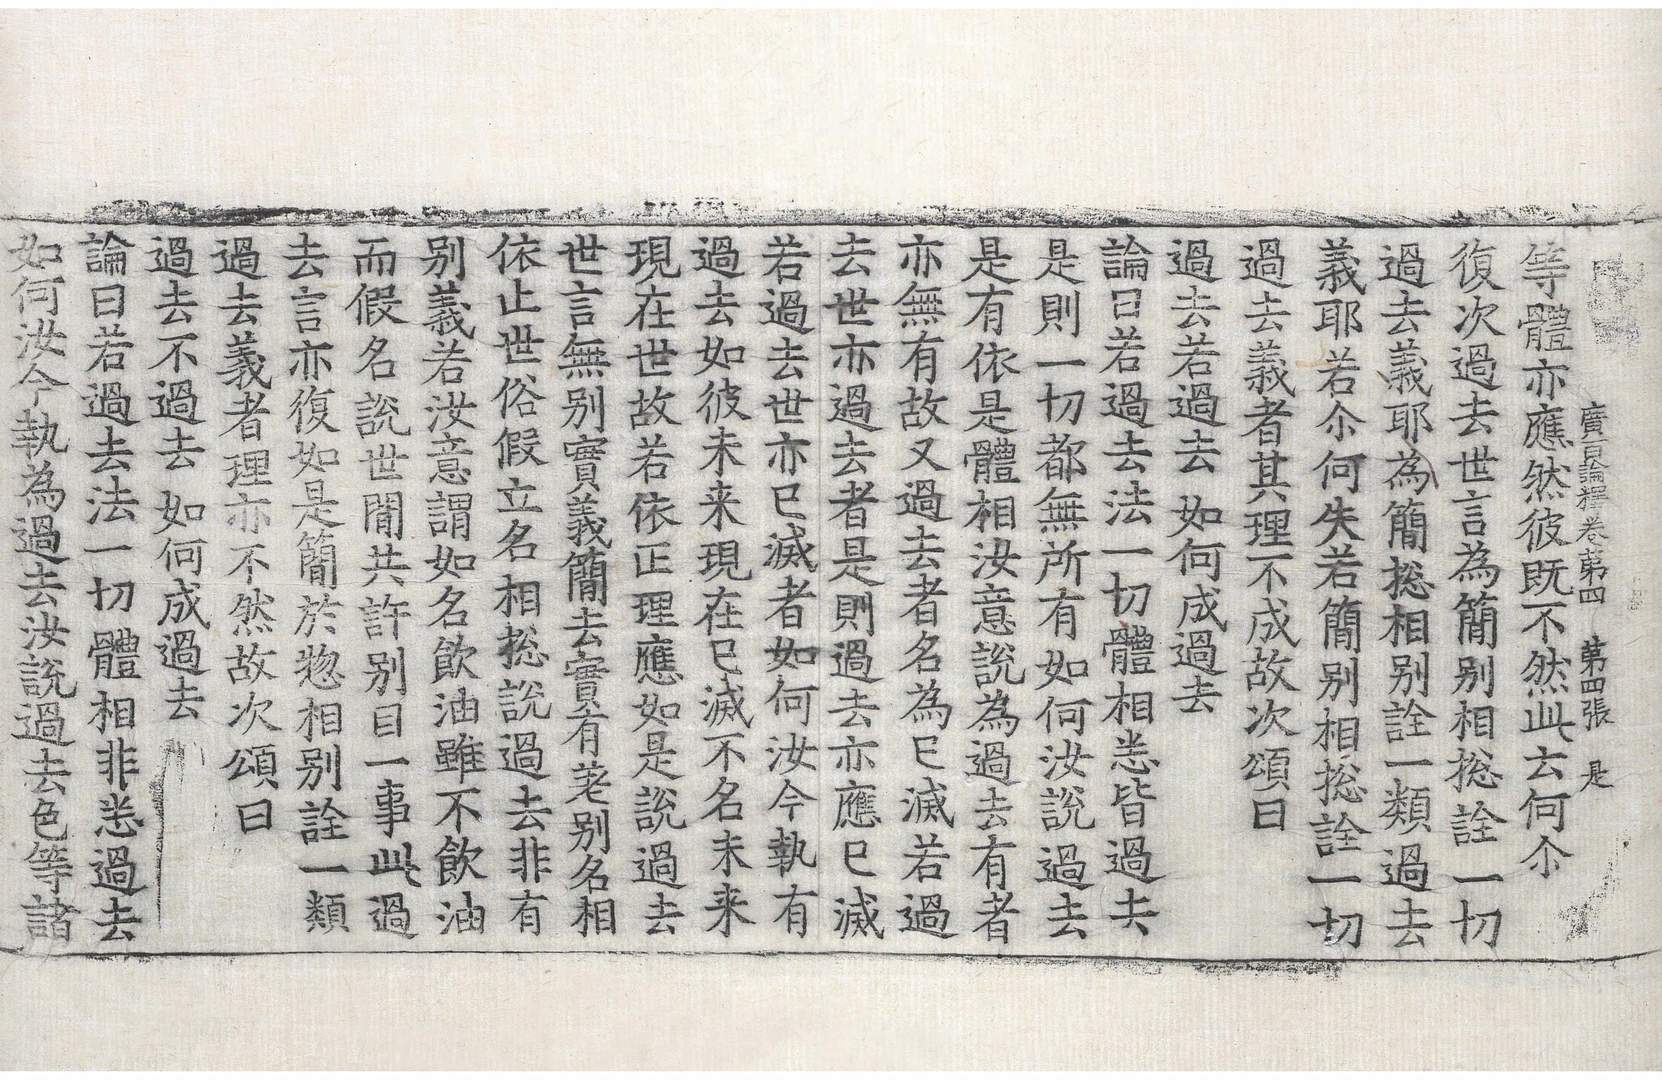 廣百論釋卷第四　第四張　是
等體亦應然彼既不然此云何尒
復次過去世言為簡別相捴詮一切
過去義耶為簡捴相別詮一類過去
義耶若尒何失若簡別相捴詮一切
過去義者其理不成故次頌曰
過去若過去　如何成過去
論曰若過去法一切體相悉皆過去
是則一切都無所有如何汝說過去
是有依是體相汝意說為過去有者
亦無有故又過去者名為已滅若過
去世亦過去者是則過去亦應已滅
若過去世亦已滅者如何汝今執有
過去如彼未来現在已滅不名未来
現在世故若依正理應如是說過去
世言無別實義簡去實有差別名相
依止世俗假立名相捴說過去非有
別義若汝意謂如名飲油雖不飲油
而假名說世閒共許別目一事此過
去言亦復如是簡於惣相別詮一類
過去義者理亦不然故次頌曰
過去不過去　如何成過去
論曰若過去法一切體相非悉過去
如何汝今執為過去汝說過去色等諸